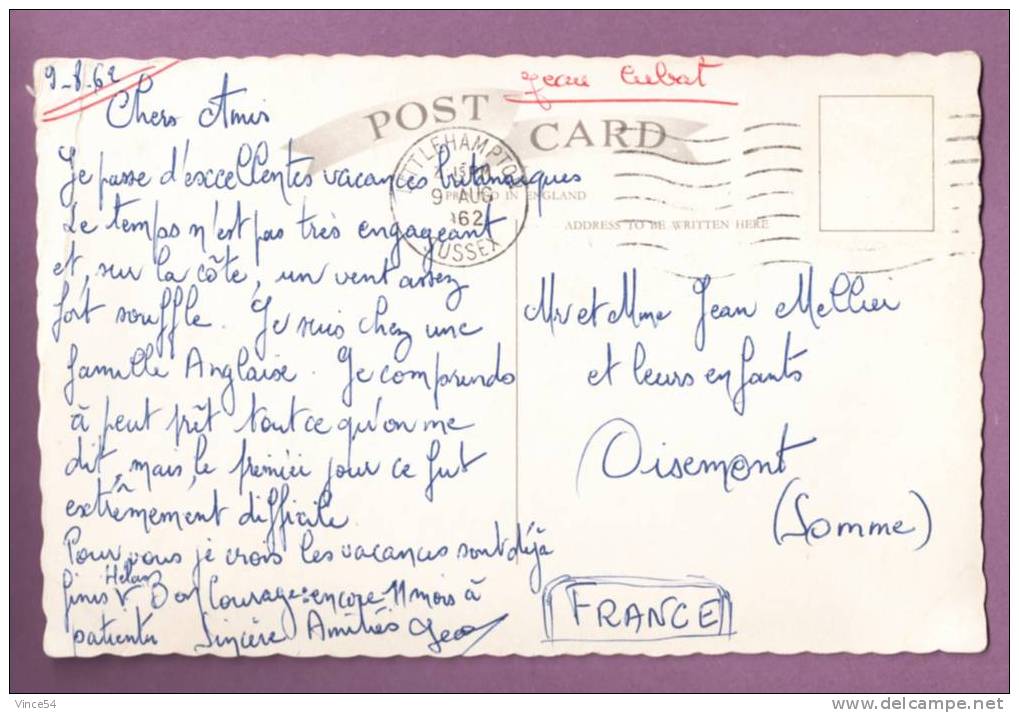 9-8-62
Jean Cubat
Chers Amis
POST CARD
LITTLEHAMPTON
9 AUG
62
SUSSEX
PRINTED IN ENGLAND
ADDRESS TO BE WRITTEN HERE
Je passe d'excellentes vacances britanniques
Le temps n'est pas très engageant
et, sur la côte, un vent assez
fort souffle. Je suis chez une
famille Anglaise. Je comprends
à peut prêt tout ce qu'on me
dit, mais, le premier jour ce fut
extrêmement difficile
Pour vous je crois les vacances sont déjà
finis Hélas Bon Courage: encore 11 mois à
patienter Sincère Amitiés
Mr et Mme Jean Mellier
et leurs enfants
Oisemont
(Somme)
FRANCE
Vince54
http://www.delcampe.net